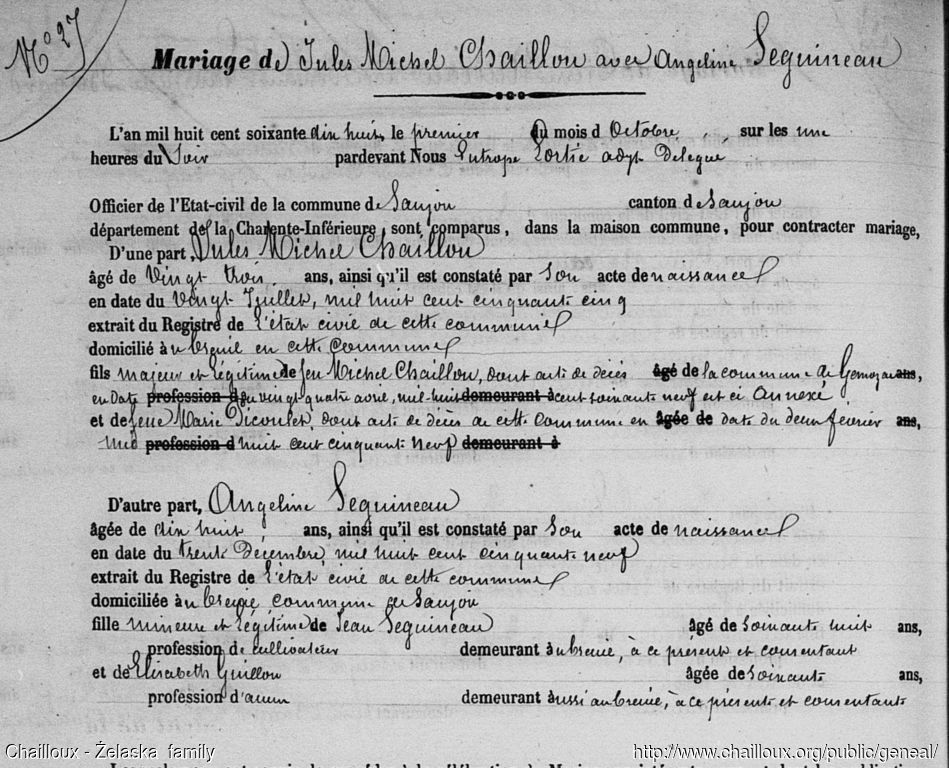 N° 27
Mariage de Jules Michel Chaillou avec Angeline Seguineau
L'an mil huit cent soixante dix huit, le premier du mois d Octobre, sur les une
heures du Soir pardevant Nous Eutrope Lortie adjt Délégué
Officier de l'Etat-civil de la commune de Saujon canton de Saujon
département de la Charente-Inférieure, sont comparus, dans la maison commune, pour contracter mariage,
D'une part, Jules Michel Chaillou
âgé de Vingt trois ans, ainsi qu'il est constaté par Son acte de naissance
en date du Vingt Juillet, mil huit cent cinquante cinq
extrait du Registre de l'état civil de cette commune
domicilié à en cette commune
fils majeur et légitime de feu Michel Chaillou, dont acte de décès âgé de la commune de Gemozac ans,
en date profession d du vingt quatre mil-huit demeurant à cent soixante neuf est ci annexé
et de feue Marie Picoulet, dont acte de décès de cette commune en âgée de date du deux février ans,
mil profession d huit cent cinquante neuf demeurant à
D'autre part, Angeline Seguineau
âgée de dix huit ans, ainsi qu'il est constaté par Son acte de naissance
en date du trente Décembre, mil huit cent cinquante neuf
extrait du Registre de l'état civil de cette commune
domiciliée à commune de Saujon
fille mineure et légitime de Jean Seguineau âgé de soixante huit ans,
profession de cultivateur demeurant à, à ce présent et consentant
et de Elisabeth Guillon âgée de soixante ans,
profession d'aucune demeurant aussi, à ce présente et consentante
Chailloux - Żelaska family http://www.chailloux.org/public/geneal/